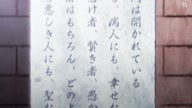 門は開かれている
も、病人にも、幸せ
者、賢き者、愚か
はもちろん、どの
悪しき人にも、聖な